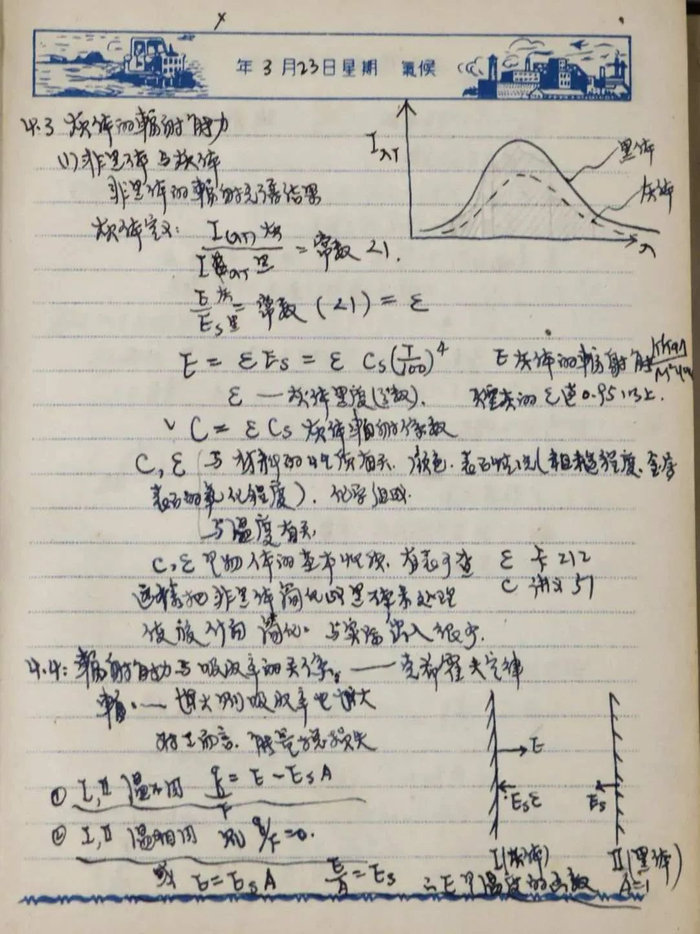 年3月23日星期 氣候
4.3 灰体的輻射能力
(1) 非黑体与灰体
非黑体的輻射
灰体定义: I(λT)灰 / IλT黑 = 常数 <1.
E灰/Es黑 = 常数 (<1) = ε
E = εEs = ε Cs(T/100)⁴ E 灰体的輻射能
ε — 灰体黑度(系数). 的ε達0.95以上.
C = εCs 灰体輻射係数
C, ε 与材料的性质有关. 颜色. 表面情况(粗糙程度. 金属
表面的氧化程度). 化学组成.
与温度有关.
C, ε 是物体的基本性质. 有表可查 ε 卡212
这样把非黑体简化成黑体来处理 C 讲义51
使 计角 简化. 与实际出入很少.
4.4: 輻射能力与吸收率的关系. —— 克希霍夫定律
輻. — 增大则吸收率也增大
对 而言. 能量 损失
① I, II 温不同 q/F = E - EsA
② I, II 温相同 则 q/F = 0.
或 E = EsA E/A = Es ∴ E是温度的函数
IλT
黑体
灰体
λ
E
Esε
Es
I(灰体)
II(黑体)
A=1